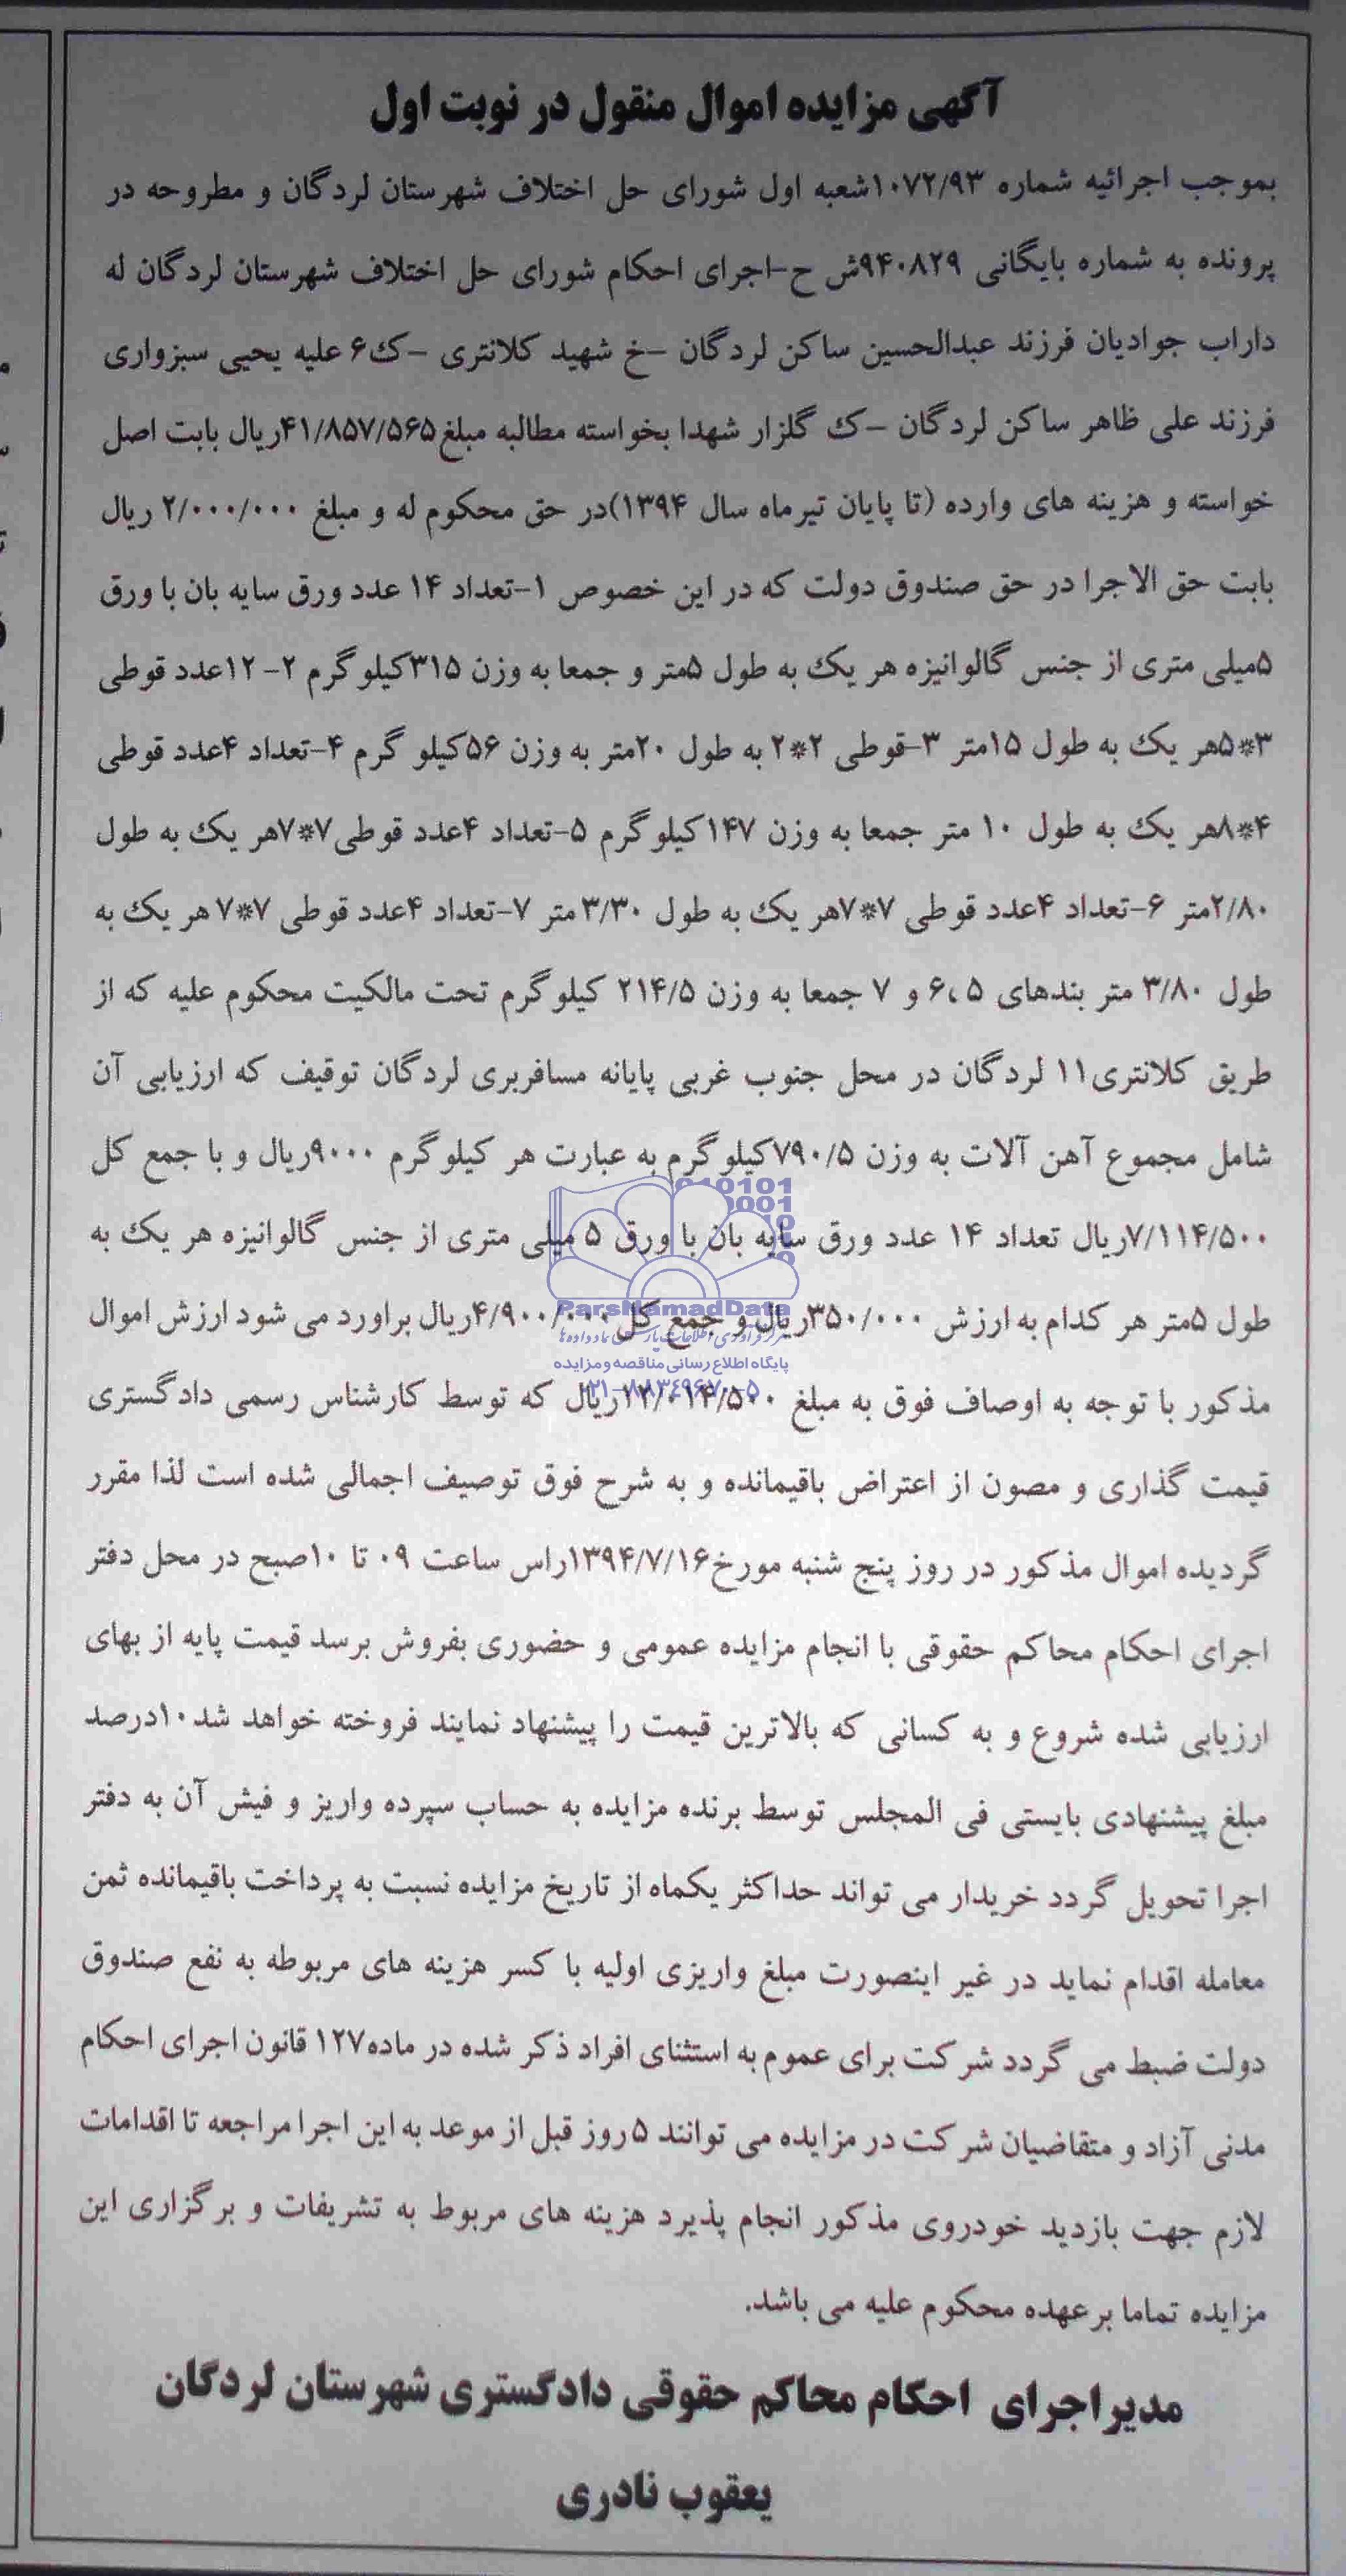 آگهی مزایده اموال منقول در نوبت اول
بموجب اجرائیه شماره ۱۰۷۲/۹۳شعبه اول شورای حل اختلاف شهرستان لردگان و مطروحه در
پرونده به شماره بایگانی ۹۴۰۸۲۹ش ح-اجرای احکام شورای حل اختلاف شهرستان لردگان له
داراب جوادیان فرزند عبدالحسین ساکن لردگان -خ شهید کلانتری -ک۶ علیه یحیی سبزواری
فرزند علی ظاهر ساکن لردگان -ک گلزار شهدا بخواسته مطالبه مبلغ۴۱/۸۵۷/۵۶۵ریال بابت اصل
خواسته و هزینه های وارده (تا پایان تیرماه سال ۱۳۹۴)در حق محکوم له و مبلغ ۲/۰۰۰/۰۰۰ ریال
بابت حق الاجرا در حق صندوق دولت که در این خصوص ۱-تعداد ۱۴ عدد ورق سایه بان با ورق
۵میلی متری از جنس گالوانیزه هر یک به طول ۵متر و جمعا به وزن ۳۱۵کیلوگرم ۲- ۱۲عدد قوطی
۳*۵هر یک به طول ۱۵متر ۳-قوطی ۲*۲ به طول ۲۰متر به وزن ۵۶کیلو گرم ۴-تعداد ۴عدد قوطی
۴*۸هر یک به طول ۱۰ متر جمعا به وزن ۱۴۷کیلوگرم ۵-تعداد ۴عدد قوطی۷*۷هر یک به طول
۲/۸۰متر ۶-تعداد ۴عدد قوطی ۷*۷هر یک به طول ۳/۳۰ متر ۷-تعداد ۴عدد قوطی ۷*۷ هر یک به
طول ۳/۸۰ متر بندهای ۵ ،۶ و ۷ جمعا به وزن ۲۱۴/۵ کیلوگرم تحت مالکیت محکوم علیه که از
طریق کلانتری۱۱ لردگان در محل جنوب غربی پایانه مسافربری لردگان توقیف که ارزیابی آن
شامل مجموع آهن آلات به وزن ۷۹۰/۵کیلوگرم به عبارت هر کیلوگرم ۹۰۰۰ریال و با جمع کل
۷/۱۱۴/۵۰۰ریال تعداد ۱۴ عدد ورق سایه بان با ورق ۵ میلی متری از جنس گالوانیزه هر یک به
طول ۵متر هر کدام به ارزش ۳۵۰/۰۰۰ریال و جمع کل ۴/۹۰۰/۰۰۰ریال براورد می شود ارزش اموال
ParsNamadData
پایگاه اطلاع رسانی مناقصه و مزایده
۰۲۱-۸۸۳۴۹۶۷۰-۵
مذکور با توجه به اوصاف فوق به مبلغ ۱۲/۰۱۴/۵۰۰ریال که توسط کارشناس رسمی دادگستری
قیمت گذاری و مصون از اعتراض باقیمانده و به شرح فوق توصیف اجمالی شده است لذا مقرر
گردیده اموال مذکور در روز پنج شنبه مورخ۱۳۹۴/۷/۱۶راس ساعت ۰۹ تا ۱۰صبح در محل دفتر
اجرای احکام محاکم حقوقی با انجام مزایده عمومی و حضوری بفروش برسد قیمت پایه از بهای
ارزیابی شده شروع و به کسانی که بالاترین قیمت را پیشنهاد نمایند فروخته خواهد شد۱۰درصد
مبلغ پیشنهادی بایستی فی المجلس توسط برنده مزایده به حساب سپرده واریز و فیش آن به دفتر
اجرا تحویل گردد خریدار می تواند حداکثر یکماه از تاریخ مزایده نسبت به پرداخت باقیمانده ثمن
معامله اقدام نماید در غیر اینصورت مبلغ واریزی اولیه با کسر هزینه های مربوطه به نفع صندوق
دولت ضبط می گردد شرکت برای عموم به استثنای افراد ذکر شده در ماده۱۲۷ قانون اجرای احکام
مدنی آزاد و متقاضیان شرکت در مزایده می توانند ۵روز قبل از موعد به این اجرا مراجعه تا اقدامات
لازم جهت بازدید خودروی مذکور انجام پذیرد هزینه های مربوط به تشریفات و برگزاری این
مزایده تماما برعهده محکوم علیه می باشد.
مدیراجرای احکام محاکم حقوقی دادگستری شهرستان لردگان
یعقوب نادری